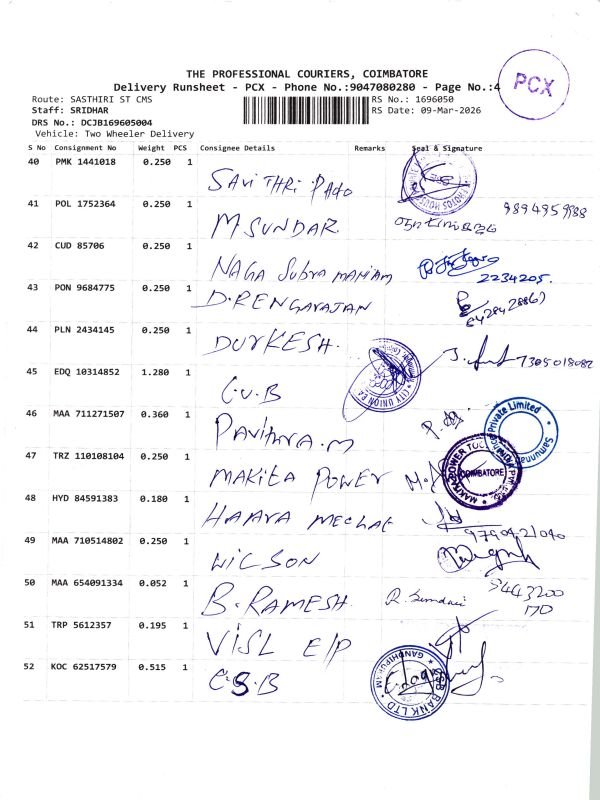 THE PROFESSIONAL COURIERS, COIMBATORE
Delivery Runsheet - PCX - Phone No.:9047080280 - Page No.:4
PCX
Route: SASTHIRI ST CMS
RS No.: 1696050
Staff: SRIDHAR
RS Date: 09-Mar-2026
DRS No.: DCJB169605004
Vehicle: Two Wheeler Delivery
S No Consignment No Weight PCS Consignee Details Remarks Seal & Signature
40 PMK 1441018 0.250 1 SAVITHRI PHOTO
41 POL 1752364 0.250 1 M SUNDAR 9894959988
42 CUD 85706 0.250 1 NAGA Subra MANIAM 2234205.
43 PON 9684775 0.250 1 D.RENGARAJAN
44 PLN 2434145 0.250 1 DURKESH. 7305018082
45 EDQ 10314852 1.280 1 C.U.B CITY UNION BA
46 MAA 711271507 0.360 1 PAVITHRA.M Private Limited Samunna
47 TRZ 110108104 0.250 1 MAKITA POWER COIMBATORE
48 HYD 84591383 0.180 1
49 MAA 710514802 0.250 1 WICSON
50 MAA 654091334 0.052 1 B.RAMESH. 9443200
170
51 TRP 5612357 0.195 1 VISL E/P
52 KOC 62517579 0.515 1 C.S.B CSB BANK LTD GANDHIPURAM